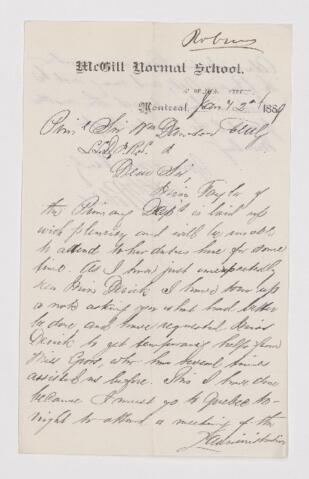 Robins
McGill Normal School.
Montreal, Jany 2d 1889
Prin'l Sir Wm Dawson CMG
LLD, F.R.S.
Dear Sir
Miss Taylor of
the Primary Dept is laid up
with pleurisy and will be unable
to attend to her duties here for some
time. As I have just unexpectedly
seen Miss Derick I have torn up
a note asking you what had better
be done, and have requested Miss
Derick to get temporary help from
Miss, who has several times
assisted us before. This I have done
because I must go to Quebec to-
night to attend a meeting of the
Administration